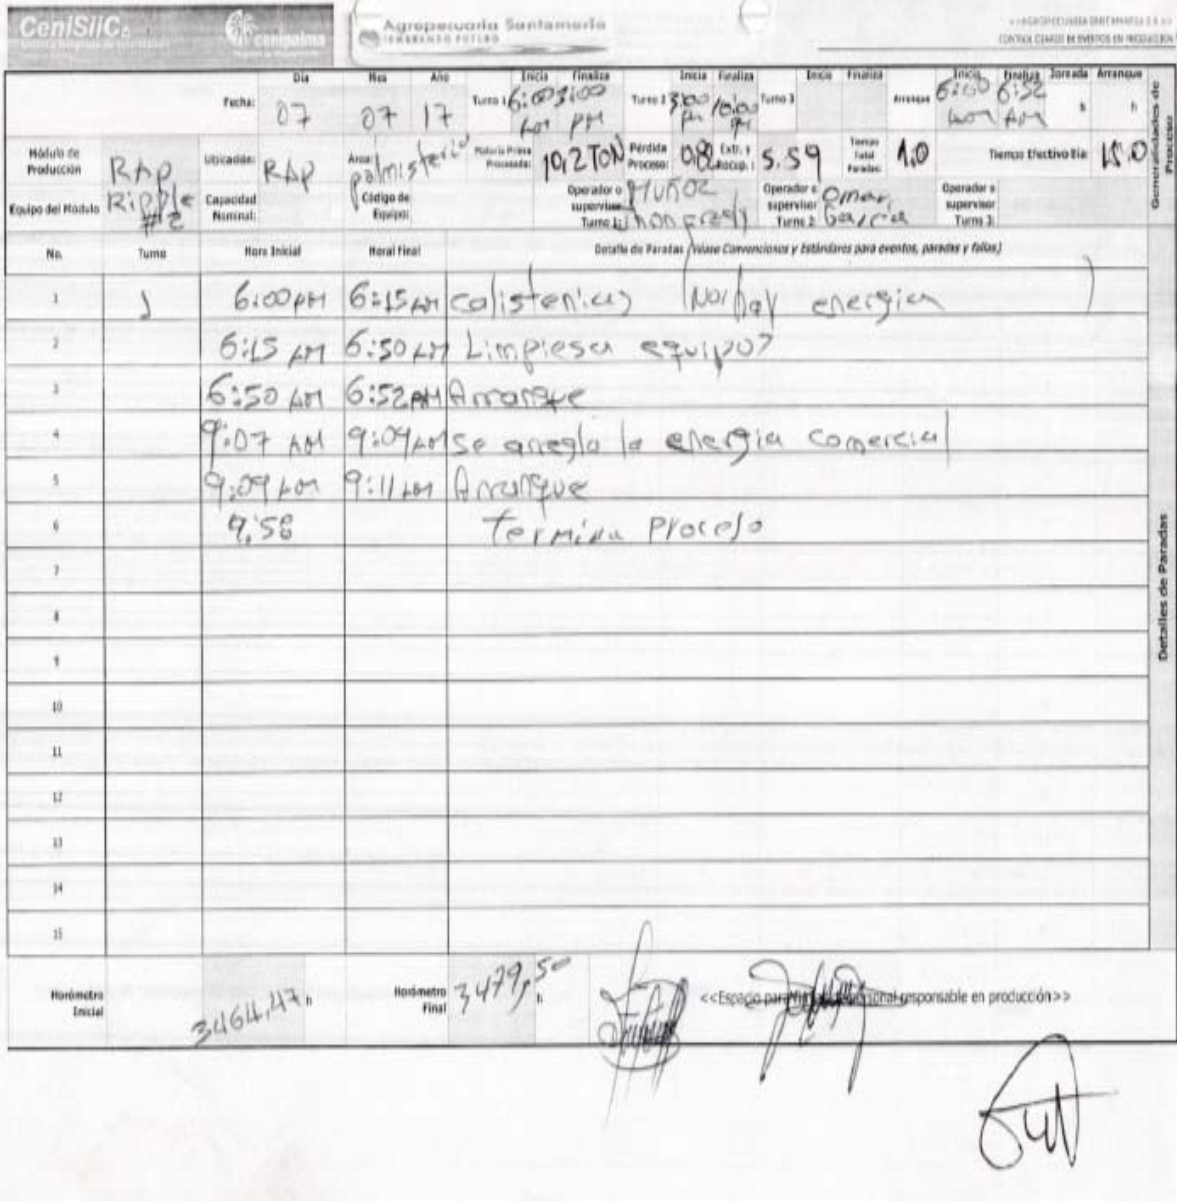 CeniSiiC
Cenipalma
Agropecuaria Santamaría
SEMBRANDO FUTURO
<<AGROPECUARIA SANTAMARIA S.A.>>
CONTROL DIARIO DE EVENTOS EN PRODUCCION
Dia Mes Año Inicia Finaliza Inicia Finaliza Inicia Finaliza Inicia Finaliza Jornada Arranque
Fecha: 07 07 17 Turno 1 6:00 AM 3:00 PM Turno 2 3:00 PM 10:00 PM Turno 3 Arranque 6:00 AM 6:52 AM h h
Módulo de Producción RAP Ubicación: RAP Area: palmisteria Materia Prima Procesada: 10,2 TON Pérdida Proceso: 0,82 Extr. y Recup.: 5.59 Tiempo Total Paradas: 1.0 Tiempo Efectivo Dia: 15.0
Equipo del Módulo Ripple #2 Capacidad Nominal: Código de Equipo: Operador o supervisor Turno 1: Muñoz Jhon Fredy Operador o supervisor Turno 2: Omar Garcia Operador o supervisor Turno 3:
Generalidades de Proceso
No. Turno Hora Inicial Horal Final Detalle de Paradas (Véase Convenciones y Estándares para eventos, paradas y fallas)
1 1 6:00 AM 6:15 AM calistenias (No hay energia )
2 6:15 AM 6:50 AM Limpiesa equipos
3 6:50 AM 6:52 AM Arranque
4 9:07 AM 9:09 AM se arregla la energia comercial
5 9:09 AM 9:11 AM Arranque
6 9:58 termina proceso
7
8
9
10
11
12
13
14
15
Detalles de Paradas
Horómetro Inicial 3464,47 h Horómetro Final 3479,50 h <<Espacio para personal responsable en producción>>